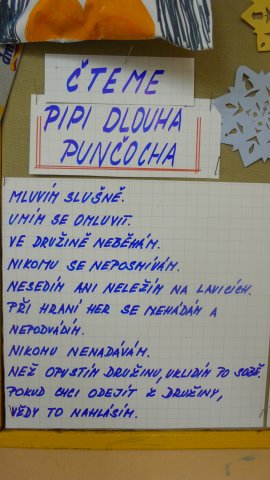 ČTEME
PIPI DLOUHÁ
PUNČOCHA
MLUVÍM SLUŠNĚ.
UMÍM SE OMLUVIT.
VE DRUŽINĚ NEBĚHÁM.
NIKOMU SE NEPOSMÍVÁM.
NESEDÍM ANI NELEŽÍM NA LAVICÍCH.
PŘI HRANÍ HER SE NEHÁDÁM A
NEPODVÁDÍM.
NIKOMU NENADÁVÁM.
NEŽ OPUSTÍM DRUŽINU, UKLIDÍM PO SOBĚ.
POKUD CHCI ODEJÍT Z DRUŽINY,
VŽDY TO NAHLÁSÍM.